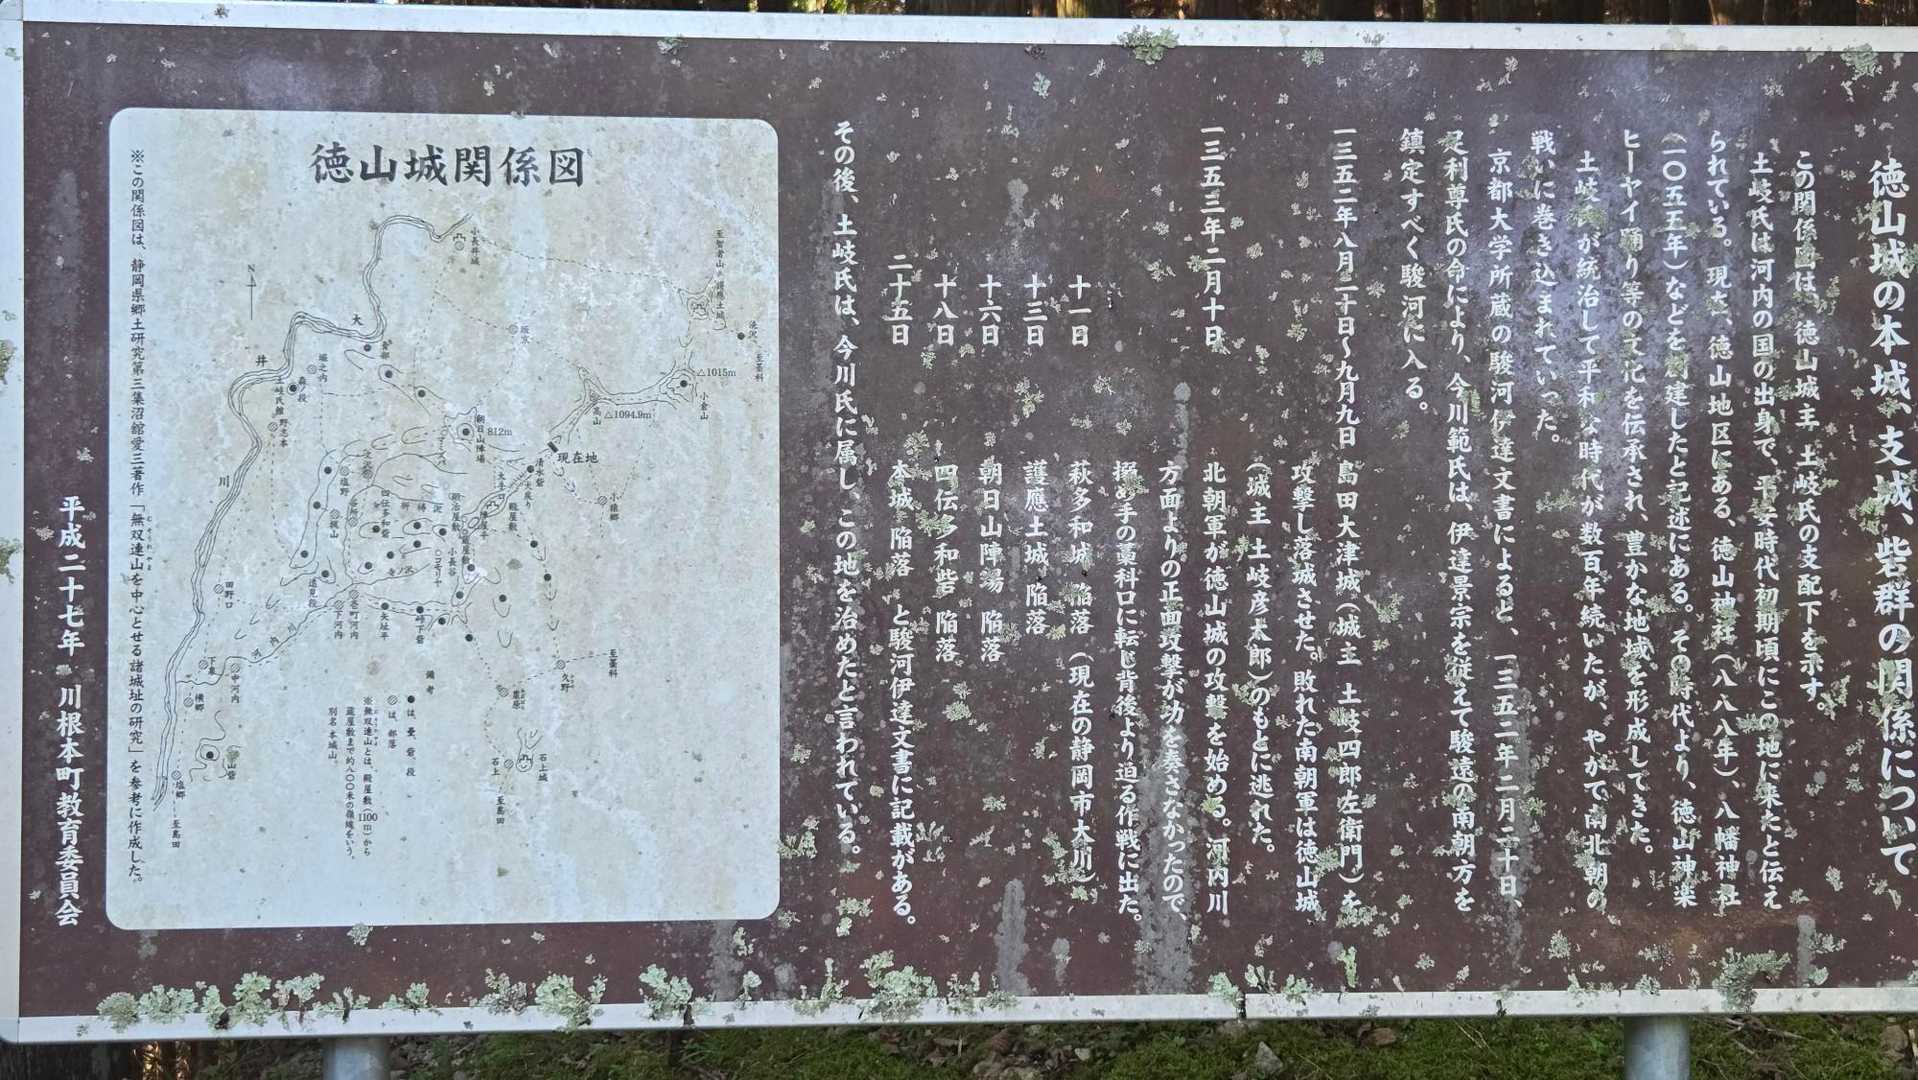 徳山城の本城、支城、砦群の関係について
この関係図は、徳山城主 土岐氏の支配下を示す。
土岐氏は河内の国の出身で、平安時代初期頃にこの地に来たと伝え
られている。現在、徳山地区にある、徳山神社（八八八年）、八幡神社
（一〇五五年）などを創建したと記述にある。その時代より、徳山神楽
ヒーヤイ踊り等の文化を伝承され、豊かな地域を形成してきた。
土岐氏が統治して平和な時代が数百年続いたが、やがて南北朝の
戦いに巻き込まれていった。
京都大学所蔵の駿河伊達文書によると、一三五二年二月二十日、
足利尊氏の命により、今川範氏は、伊達景宗を従えて駿遠の南朝方を
鎮定すべく駿河に入る。
一三五二年八月二十日〜九月九日 島田大津城（城主 土岐四郎左衛門）を
攻撃し落城させた。敗れた南朝軍は徳山城
（城主 土岐彦太郎）のもとに逃れた。
一三五三年二月十日 北朝軍が徳山城の攻撃を始める。河内川
方面よりの正面攻撃が功を奏さなかったので、
搦め手の藁科口に転じ背後より迫る作戦に出た。
十一日 萩多和城 陥落（現在の静岡市大川）
十三日 護應土城 陥落
十六日 朝日山陣場 陥落
十八日 四伝多和砦 陥落
二十五日 本城 陥落 と駿河伊達文書に記載がある。
その後、土岐氏は、今川氏に属し、この地を治めたと言われている。
徳山城関係図
小長井城
至智者山
護應土城
洗沢
至藁科
△1015m
小倉山
△1094.9m
高山
坂京
大
井
川
N
青部
堀之内
森ノ段
土岐氏館
野志本
朝日山陣場
812m
現在地
清水砦
犬戻り
大手口
殿屋敷
小猿郷
塩野
田野口
河内川
下泉
中河内
横郷
塩郷
至島田
遠見段
下河内
小長谷
コモリヤ
蔵屋敷
鍛冶屋敷
四伝多和砦
至藁科
久野
石上
石上城
至島田
備考
●は、塁、砦、段
◎は、部落
※無双連山とは、殿屋敷（1100m）から
蔵屋敷まで約八〇〇米の嶺線をいう。
別名本城山。
※この関係図は、静岡県郷土研究第三集沼館愛三著作「無双連山を中心とせる諸城址の研究」を参考に作成した。
平成二十七年 川根本町教育委員会